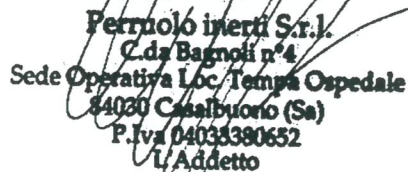 Perruolo inerti S.r.l.
C.da Bagnoli n°4
Sede Operativa Loc. Tempa Ospedale
84030 Casalbuono (Sa)
P.Iva 04038380652
L'Addetto